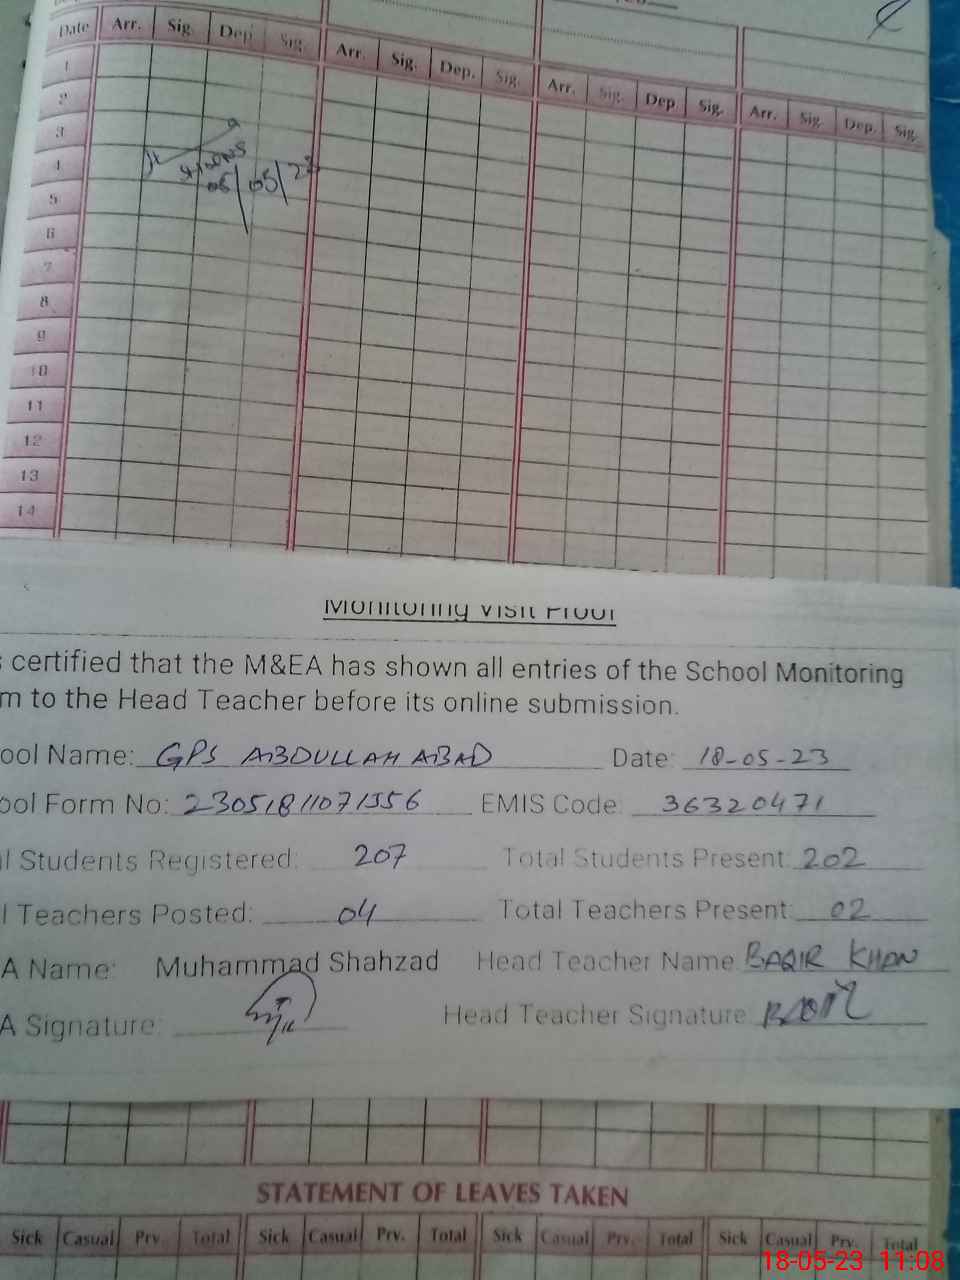 Date Arr. Sig. Dep. Sig. Arr. Sig. Dep. Sig. Arr. Sig. Dep. Sig. Arr. Sig. Dep. Sig.
1
2
3
4
05/05/23
5
6
7
8
9
10
11
12
13
14
Monitoring Visit Proof
certified that the M&EA has shown all entries of the School Monitoring
m to the Head Teacher before its online submission.
ool Name: GPS ABDULLAH ABAD Date: 18-05-23
ool Form No: 23051811071556 EMIS Code: 36320471
l Students Registered: 207 Total Students Present: 202
l Teachers Posted: 04 Total Teachers Present: 02
A Name: Muhammad Shahzad Head Teacher Name BAQIR KHAN
A Signature: Head Teacher Signature:
STATEMENT OF LEAVES TAKEN
Sick Casual Prv. Total Sick Casual Prv. Total Sick Casual Prv. Total Sick Casual Prv. Total
18-05-23 11:08